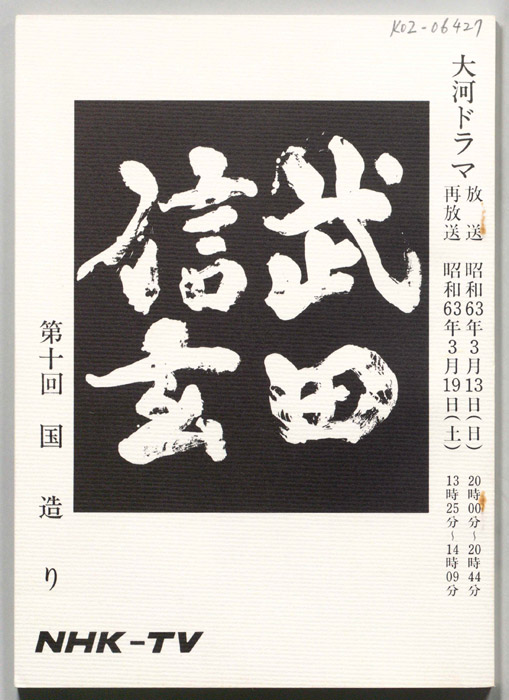 K02-06427
大河ドラマ
放送 昭和63年3月13日(日) 20時00分~20時44分
再放送 昭和63年3月19日(土) 13時25分~14時09分
武田
信玄
第十回 国造り
NHK-TV